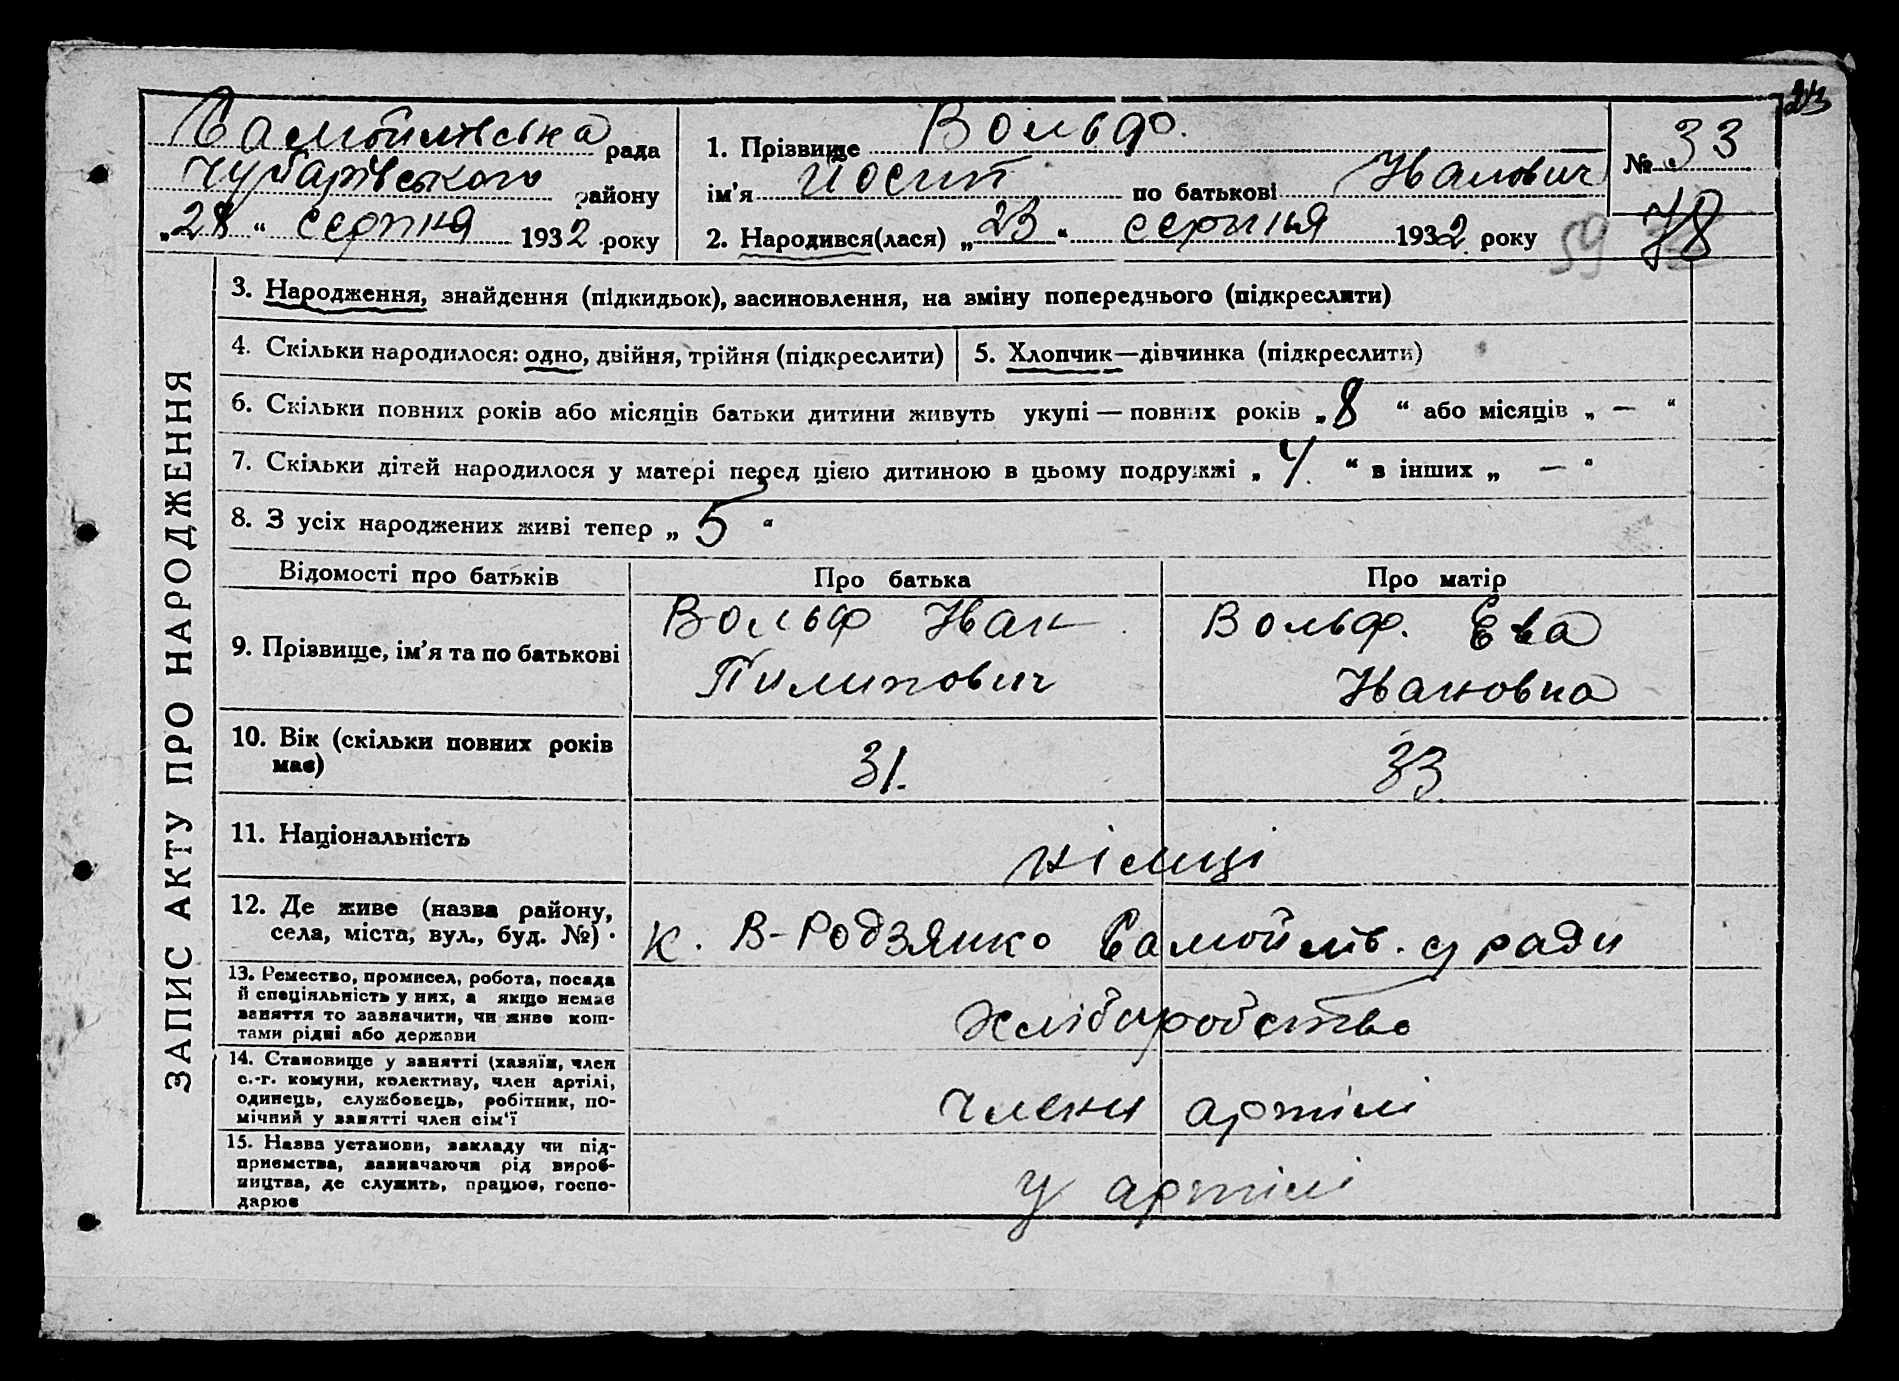 23
Самойлівська рада
Чубарівського району
„28“ серпня 1932 року
1. Прізвище Вольф.
ім’я Йосип по батькові Иванович
2. Народився(лася) „23“ серпня 1932 року
№ 33
59 78
ЗАПИС АКТУ ПРО НАРОДЖЕННЯ
3. Народження, знайдення (підкидьок), засиновлення, на зміну попереднього (підкреслити)
4. Скільки народилося: одно, двійня, трійня (підкреслити)
5. Хлопчик—дівчинка (підкреслити)
6. Скільки повних років або місяців батьки дитини живуть укупі — повних років „8“ або місяців „—“
7. Скільки дітей народилося у матері перед цією дитиною в цьому подружжі „4“ в інших „—“
8. З усіх народжених живі тепер „5“
Відомості про батьків
Про батька
Про матір
9. Прізвище, ім’я та по батькові
Вольф Иван
Пилипович
Вольф. Ева
Ивановна
10. Вік (скільки повних років
має)
31.
33
11. Національність
німці
12. Де живе (назва району,
села, міста, вул., буд. №)
к. В-Родзянко Самойлів. с/ради
13. Ремество, промисел, робота, посада
й спеціяльність у них, а якщо немає
заняття то зазначити, чи живе кош-
тами рідні або держави
хліборобство
14. Становище у занятті (хазяїн, член
с.-г. комуни, колективу, член артілі,
одинець, службовець, робітник, по-
мічний у занятті член сім’ї
члени артілі
15. Назва установи, закладу чи під-
приємства, зазначаючи рід вироб-
ництва, де служить, працює, госпо-
дарює
у артілі